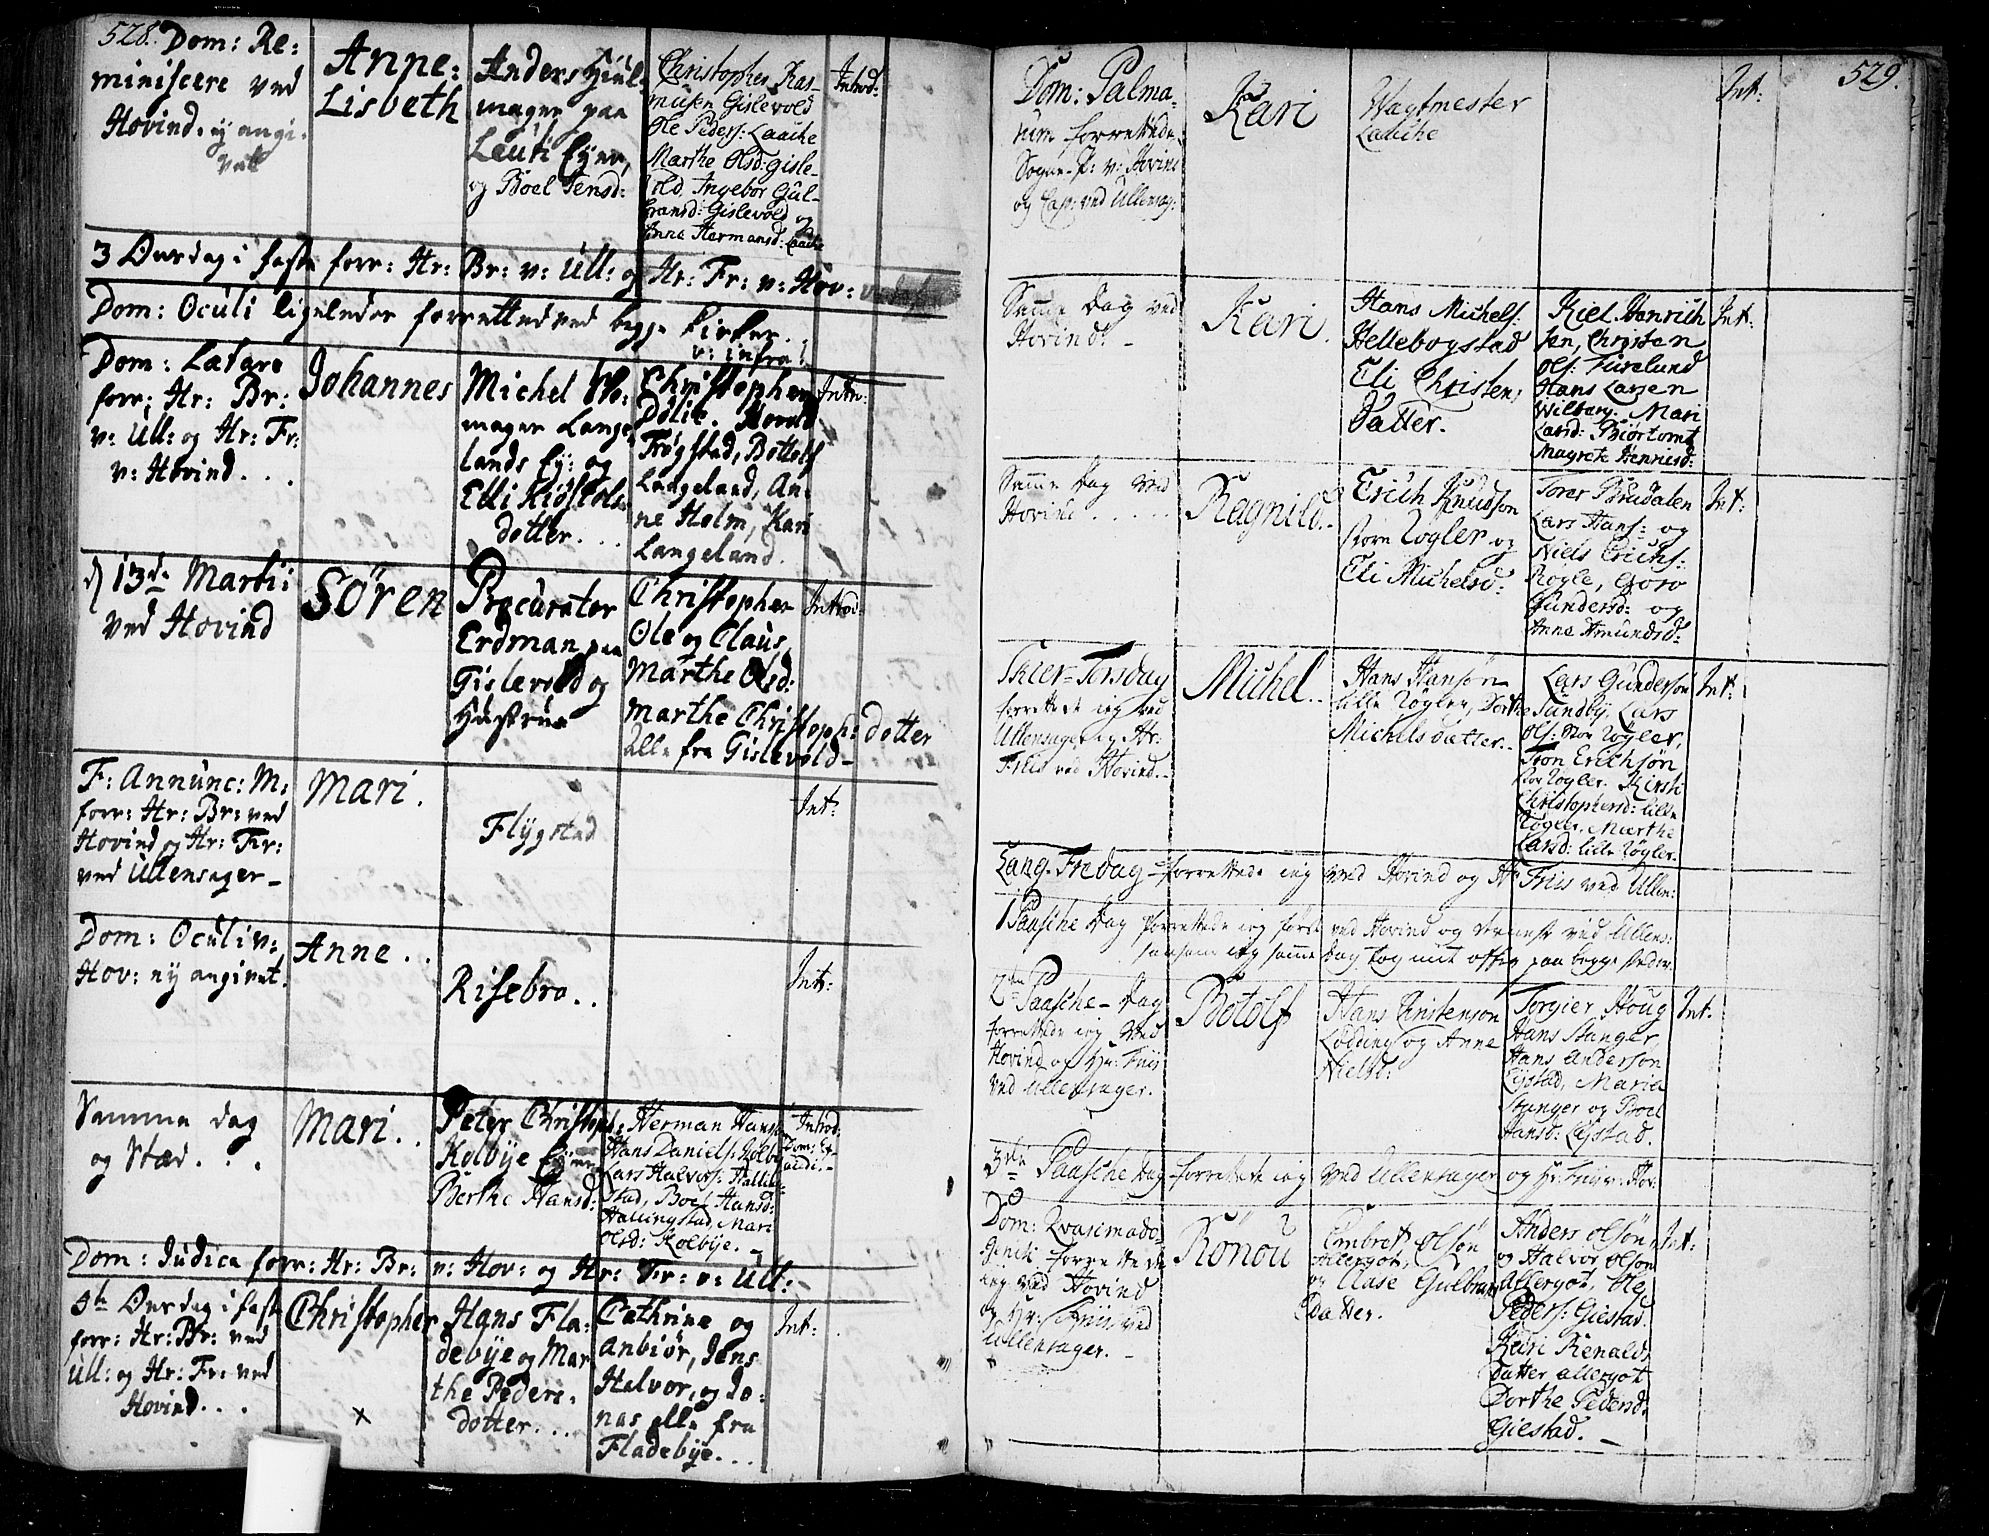 528.
Dom: Re:
miniscere ved
Hovind. ey angi-
vet
Anne-
Lisbeth
Anders Hiul-
mager paa
Leuti Eyer,
og Boel Jensd:
Christopher Ras-
musen Gislevold
Ole Peders: Laache
Marthe Olsd: Gisle-
vold, Ingebor Gul-
bransd: Gislevold og
Anne Hermansd: Laache
Introd:
3 Onsdag i faste forr: Hr: Br: v: Ull: og Hr: Fr: v: Hov:
Dom: Oculi ligeledes forretted ved begge Kirker.
v: infra!
Dom: Lætare
forr: Hr: Br:
v: Ull: og Hr: Fr:
v: Hovind . . .
Johannes
Michel
mager Lange-
lands Ey: og
Elli Kiøstols-
dotter. . .
Christopher
Dølie. Hovel
Frøgstad, Bottolf
Langeland, An-
ne Holm, Kari
Langeland.
Intr:
d 13de Martii
ved Hovind
Sören
Procurator
Erdman paa
Gislevold og
Hustrue
Christopher
Ole og Claus,
Marthe Olsd:
Marthe Christoph: dotter
alle fra Gislevold-
Introd:
F: Annunc: M:
forr: Hr: Br: ved
Hovind og Hr: Fr:
ved Ullensager -
Mari.
Flÿgstad
Int:
Dom: Oculi v:
Hov: ey angivet.
Anne . .
Risebro . .
Int:
Samme dag
og Stæd . . .
Mari . .
Peter Christoph:
Kolbÿe Eyer
Berthe Hansd:
Herman Hans:
Hans Daniels: Kolby
Lars Halvors: Halling-
stad, Boel Hansd:
Hallingstad, Mari
Olsd: Kolbÿe. -
Introd:
Dom: Ex-
audi. -
Dom: Judica forr: Hr: Br: v: Hov: og Hr: Fr: v: Ull:
5te Onsdag i faste
forr: Hr: Br: ved
Ull: og Hr: Fr: ved
Hovind . . .
Christopher
x
Hans Fla-
debÿe og Mar-
the Peders-
dotter. . .
Cathrine og
Anbiör, Jens
Halvor, og Jo-
nas alle fra
Fladebÿe. . .
Int:
529.
Dom: Palma-
rum forrettede
Sogne-P: v: Hovind
og Cap: ved Ullensag:
Kari
Wagtmester
Laache
Int:
Samme Dag ved
Hovind: -
Kari.
Hans Michels:
Hellebogstad
Eli Christens
Datter.
Kiel Henrich
sen, Christen
Ols: Furelund
Hans Larsen
Wilberg. Mari
Larsd: Biörtomt
Magrete Henricsd:
Int:
Samme Dag ved
Hovind . . . . .
Ragnild..
Erich Knudson
store Røgler og
Eli Michelsd:
Tores Brudalen
Lars Hans: og
Niels Erichs:
Røgle, Goro
Gundersd: og
Anne Amundsd:
Int:
Skier-Torsdag
forrettede ieg ved
Ullensager og Hr:
Friis ved Hovind.-
Michel..
Hans Hansøn
lille Røgler, Dorthe
Michelsdatter..
Lars Gunderson
Sundby. Lars
Ols: stor Røgler,
Tron Erichsøn
stor Røgler. Kirsti
Christophersd: lille
Røgler. Marthe
Larsd: lille Røgler.
Int:
Lang-Fredag forrettede ieg ved Hovind og Hr Friis ved Ullen:
1 Paasche Dag forrettede ieg først ved Hovind og dernest ved Ullens:
saasom ieg samme dag tog mit offer paa begge steder.
2den Paasche-Dag
forrettede ieg ved
Hovind og Hr: Friis
ved Ullensager.
Botolf
Hans Christenson
Lodding og Anne
Nielsd:
Torgier Houg
Hans Stanger
Hans Anderson
Lystad, Maria
Stanger og Boel
Hansd: Lystad.
Int.
3die Paasche Dag forrettede ieg ved Ullensager og Hr: Friis v: Hov:
Dom: Qvasimodo
Geniti forrettede
ieg ved Hovind
og Hr: Friis ved
Ullensager. -
Rönou
Embret Olsön
Allergot,
og Aase Gulbrans
Datter.
Anders Olsön
og Halvor Olson
Allergot, Ole
Peders: Giestad.
Kari Renalds
Datter Allergot
Dorthe Pedersd:
Giestad. -
Int: